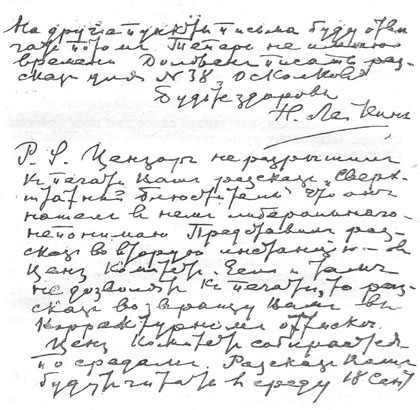 На другие пункты письма буду отве
чать потом. Теперь не имею
времени. Должен писать раз-
сказ для N 38 Осколков
Будьте здоровы
Н. Лейкин
P. S. Цензор не разрешил
к печати Ваш разсказ „Сверх-
штатный блюститель". Что он
нашел в нем либерального -
не понимаю. Представил раз-
сказ во вторую инстанцию — в
Ценз. Комитет. Если и там
не дозволят к печати, то раз-
сказ возвращу Вам в
корректурном оттиске.
Ценз. Комитет собирается
по средам. Разсказ Ваш
будут читать в среду 18 Сент